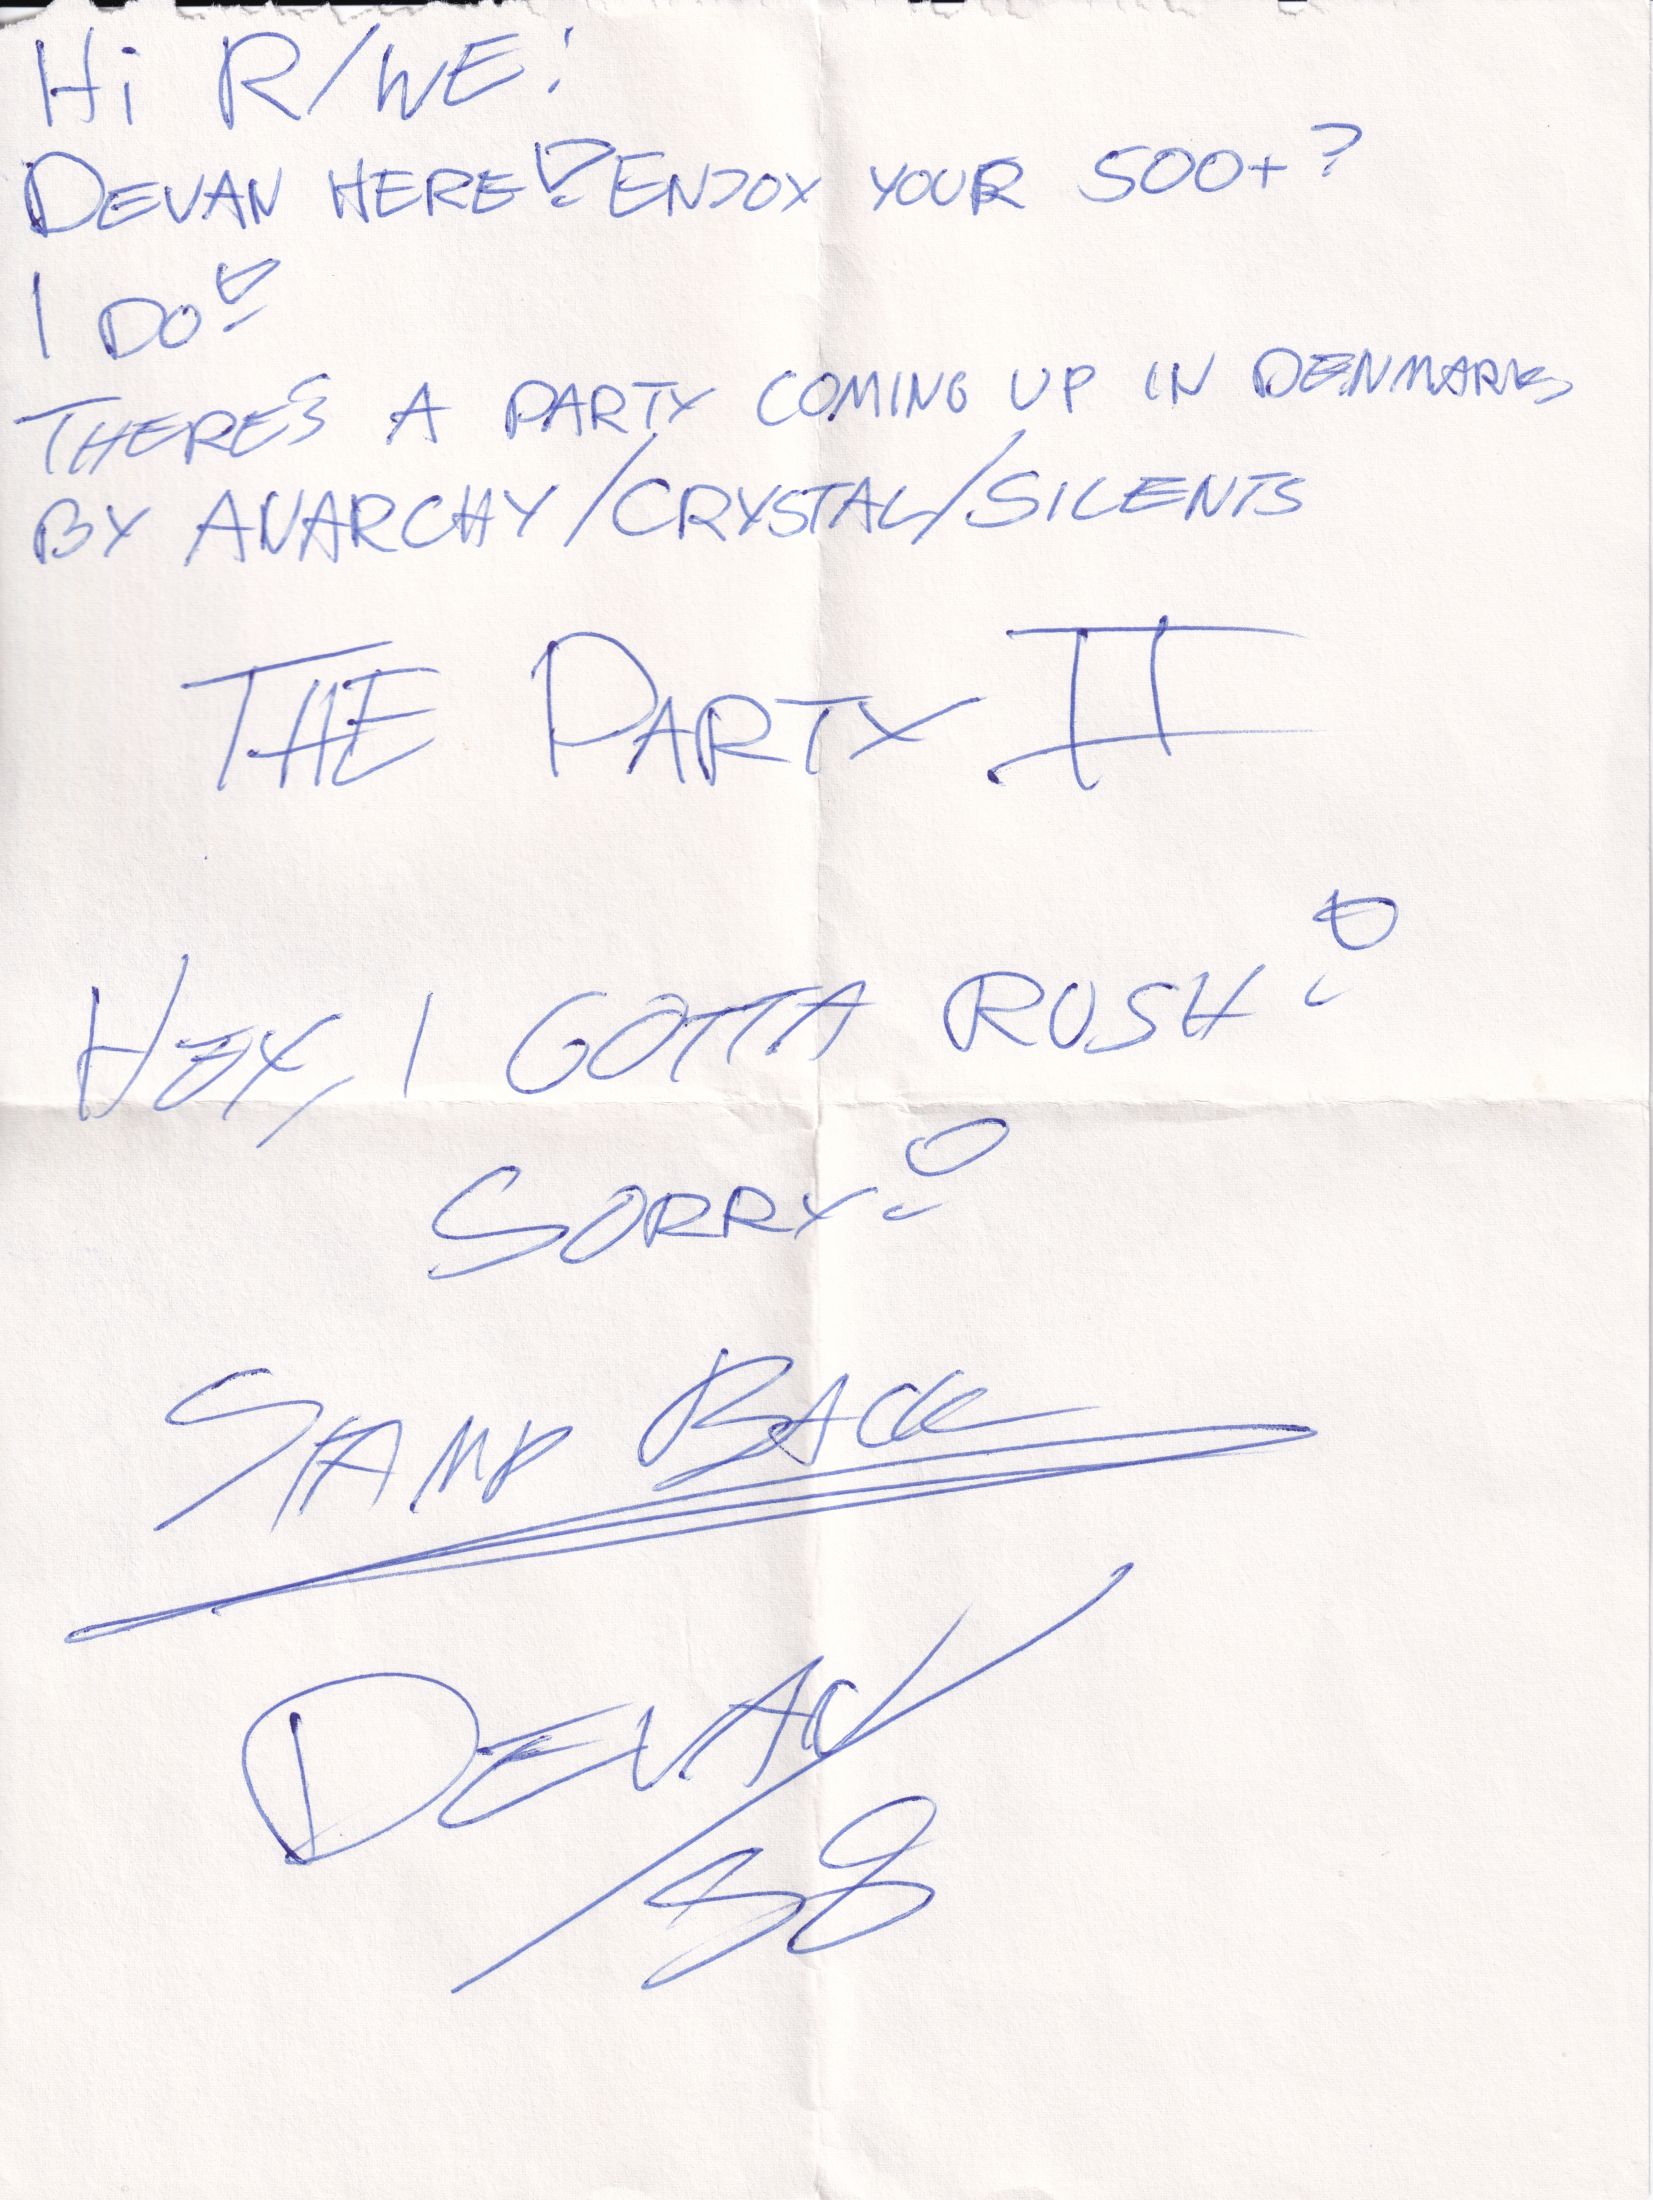 Hi R/WE!
DEVAN HERE! ENJOY YOUR 500+?
I DO!
THERE'S A PARTY COMING UP IN DENMARK,
BY ANARCHY/CRYSTAL/SILENTS
THE PARTY II
HEY, I GOTTA RUSH!
SORRY!
STAMP BACK
DEVAN